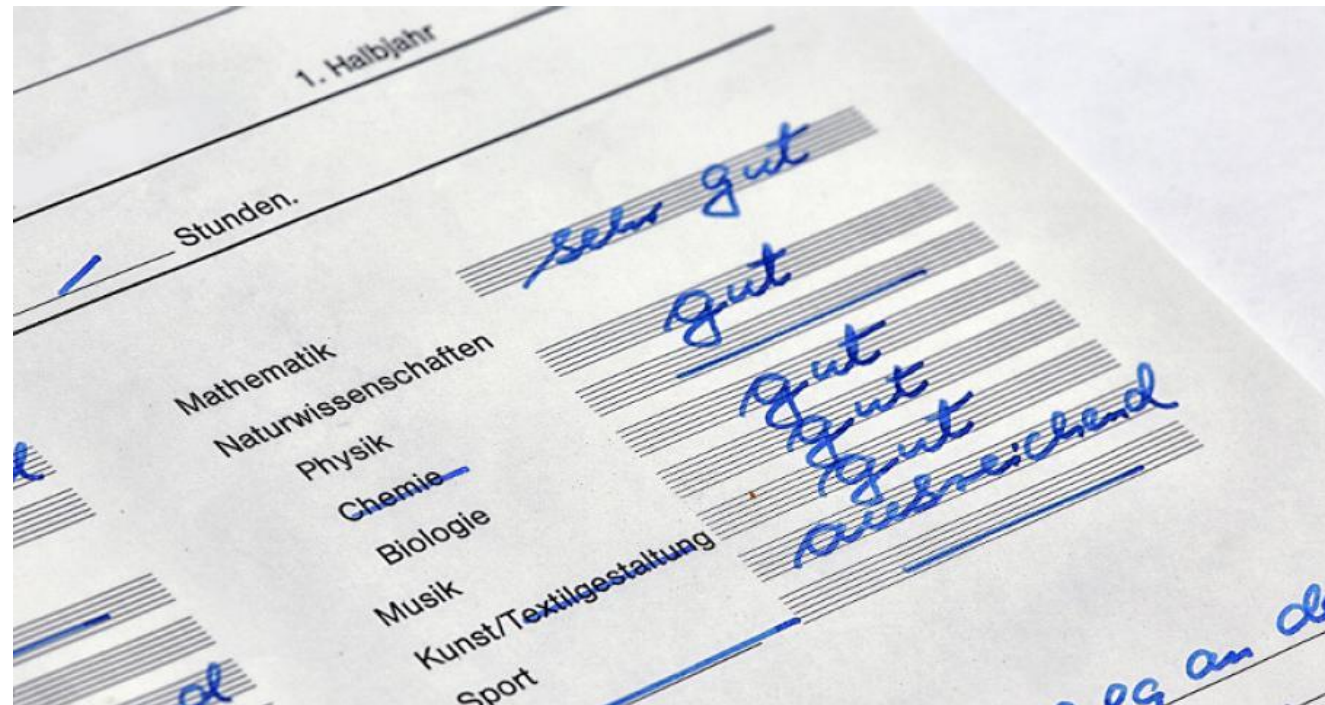 1. Halbjahr
Stunden.
Mathematik sehr gut
Naturwissenschaften
Physik gut
Chemie
Biologie gut
Musik gut
Kunst/Textilgestaltung gut
Sport ausreichend
an